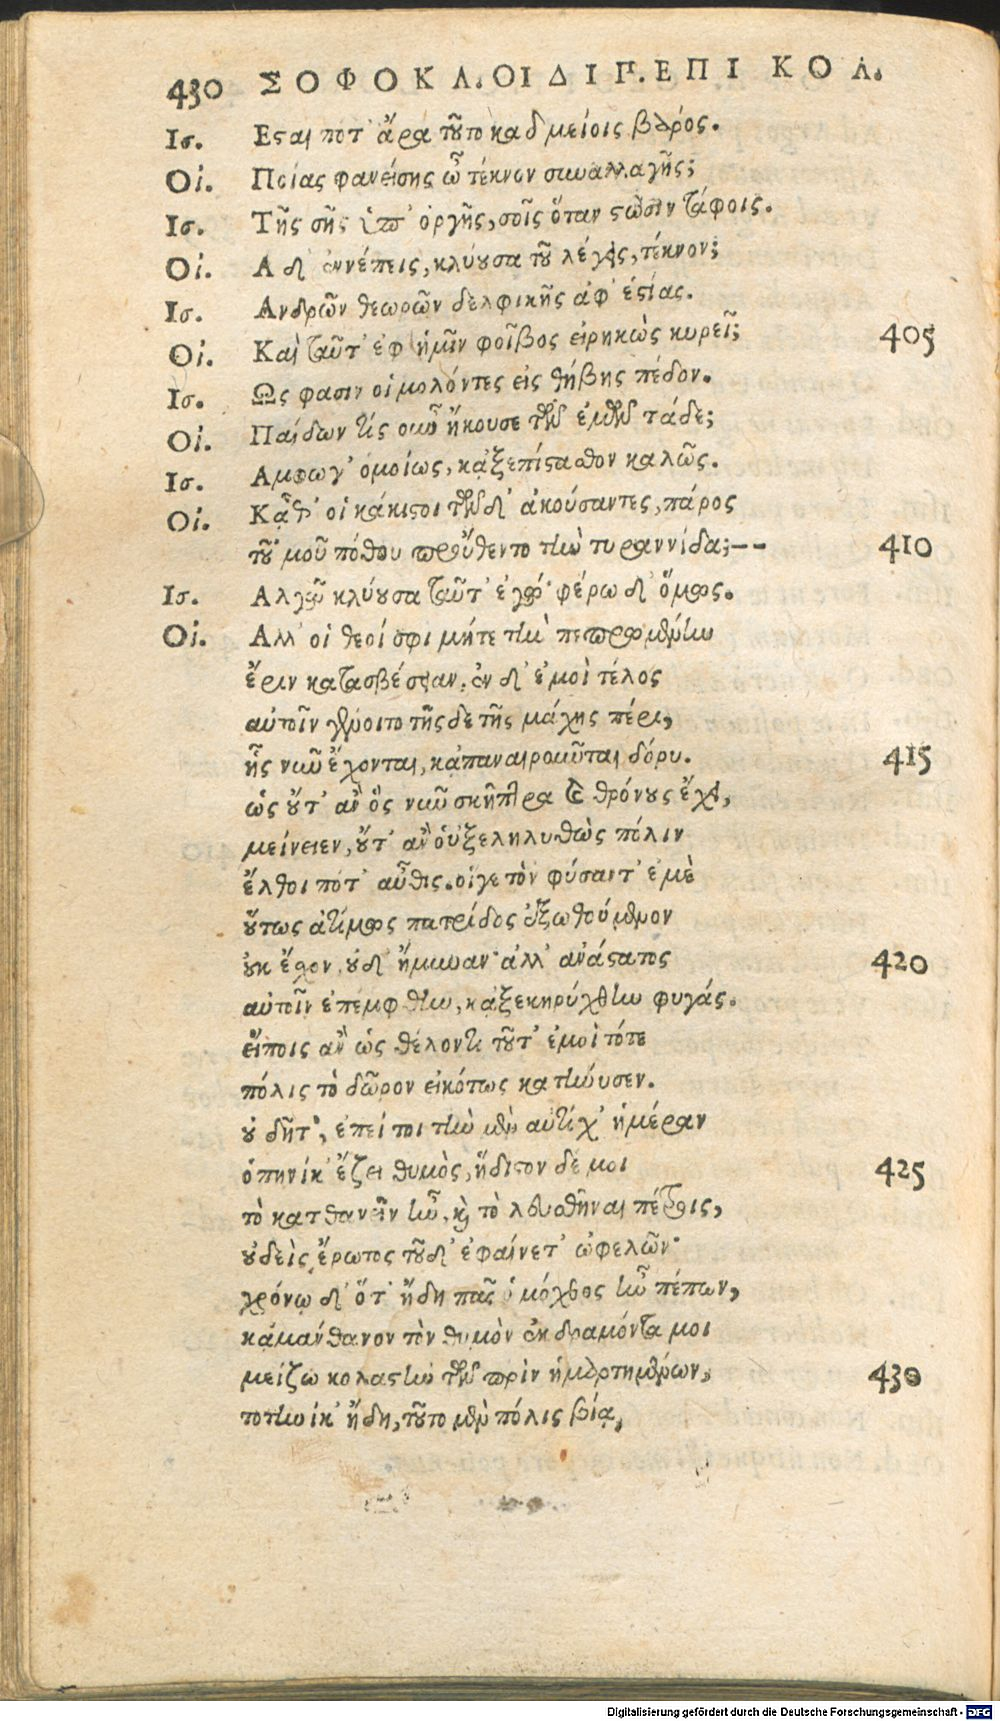 430 ΣΟΦΟΚΛ. ΟΙΔΙΠ. ΕΠΙ ΚΟΛ.
Ισ. Εσται ποτ' ἄρα τοῦτο καδμείοις βάρος.
Οἰ. Ποίας φανείσης ὦ τέκνον συναλλαγῆς;
Ισ. Τῆς σῆς ὑπ' ὀργῆς, σοῖς ὅταν στῶσιν τάφοις.
Οἰ. Α δ' ἐννέπεις, κλύουσα τοῦ λέγεις, τέκνον;
Ισ. Ανδρῶν θεωρῶν δελφικῆς ἀφ' ἑστίας.
Οἰ. Καὶ ταῦτ' ἐφ' ἡμῖν φοῖβος εἰρηκὼς κυρεῖ; 405
Ισ. Ως φασιν οἱ μολόντες εἰς θήβης πέδον.
Οἰ. Παίδων τίς οὖν ἤκουσε τῶν ἐμῶν τάδε;
Ισ. Αμφω γ' ὁμοίως, κἀξεπίστασθον καλῶς.
Οἰ. Κᾆθ' οἱ κάκιστοι τῶνδ' ἀκούσαντες, πάρος
τοὐμοῦ πόθου προὔθεντο τὴν τυραννίδα;-- 410
Ισ. Αλγῶ κλύουσα ταῦτ' ἐγώ· φέρω δ' ὅμως.
Οἰ. Αλλ' οἱ θεοί σφι μήτε τὴν πεπρωμένην
ἔριν κατασβέσειαν, ἐν δ' ἐμοὶ τέλος
αὐτοῖν γένοιτο τῆσδε τῆς μάχης πέρι,
ἧς νῦν ἔχονται, κἀπαναιροῦνται δόρυ. 415
ὡς οὔτ' ἂν ὃς νῦν σκῆπτρα καὶ θρόνους ἔχει,
μείνειεν, οὔτ' ἂν οὑξεληλυθὼς πόλιν
ἔλθοι ποτ' αὖθις. οἵγε τὸν φύσαντ' ἐμὲ
οὕτως ἀτίμως πατρίδος ἐξωθούμενον
οὐκ ἔσχον, οὐδ' ἤμυναν· ἀλλ' ἀνάστατος 420
αὐτοῖν ἐπέμφθην, κἀξεκηρύχθην φυγάς.
εἴποις ἂν ὡς θέλοντι τοῦτ' ἐμοὶ τότε
πόλις τὸ δῶρον εἰκότως κατῄνυσεν.
οὐ δῆτ', ἐπεί τοι τὴν μὲν αὐτίχ' ἡμέραν
ὁπηνίκ' ἔζει θυμὸς, ἥδιστον δέ μοι 425
τὸ κατθανεῖν ἦν, καὶ τὸ λευσθῆναι πέτροις,
οὐδεὶς ἔρωτος τοῦδ' ἐφαίνετ' ὠφελῶν·
χρόνῳ δ' ὅτ' ἤδη πᾶς ὁ μόχθος ἦν πέπων,
κἀμάνθανον τὸν θυμὸν ἐκδραμόντα μοι
μείζω κολαστὴν τῶν πρὶν ἡμαρτημένων, 430
τοτηνίκ' ἤδη, τοῦτο μὲν πόλις βίᾳ,
Digitalisierung gefördert durch die Deutsche Forschungsgemeinschaft - DFG